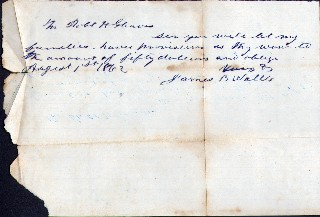 Mr Robt H Graves
Sir you will let my
families have provisions as they want to
the amount of fifty dollars and oblige
August 1st 1862 Yours &
James B Walls